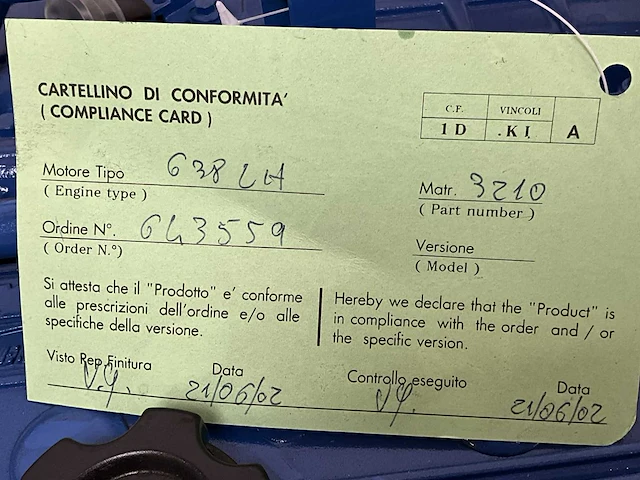 CARTELLINO DI CONFORMITA'
( COMPLIANCE CARD )
C.F. VINCOLI
1 D .KI A
Motore Tipo 638 LH
( Engine type )
Matr. 3210
( Part number )
Ordine N°. 643559
( Order N.°)
Versione
( Model )
Si attesta che il "Prodotto" e' conforme
alle prescrizioni dell'ordine e/o alle
specifiche della versione.
Hereby we declare that the "Product" is
in compliance with the order and / or
the specific version.
Visto Rep.Finitura Data
21/06/02
Controllo eseguito Data
21/06/02